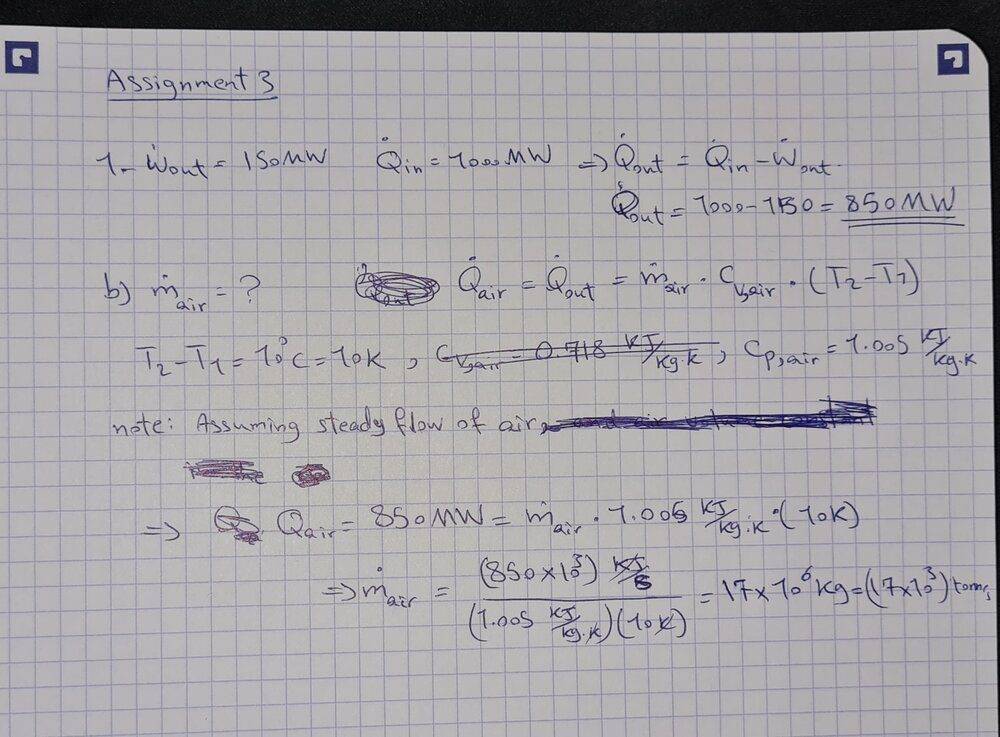 Assignment 3
1- Ẇout = 150MW Q̇in = 1000MW => Q̇out = Q̇in - Ẇout.
Q̇out = 1000-150 = 850MW
b) ṁair = ? Q̇air = Q̇out = ṁair · Cv,air · (T2-T1)
T2-T1 = 10°C = 10K , Cv,air = 0.718 KJ/kg.K , Cp,air = 1.005 KJ/kg.K
note: Assuming steady flow of air,
=> Qair = 850MW = ṁair · 1.005 KJ/kg.K · (10K)
=> ṁair = (850×10³) KJ/s / (1.005 KJ/kg.K)(10K) = 17×10⁶ Kg = (17×10³) tonns